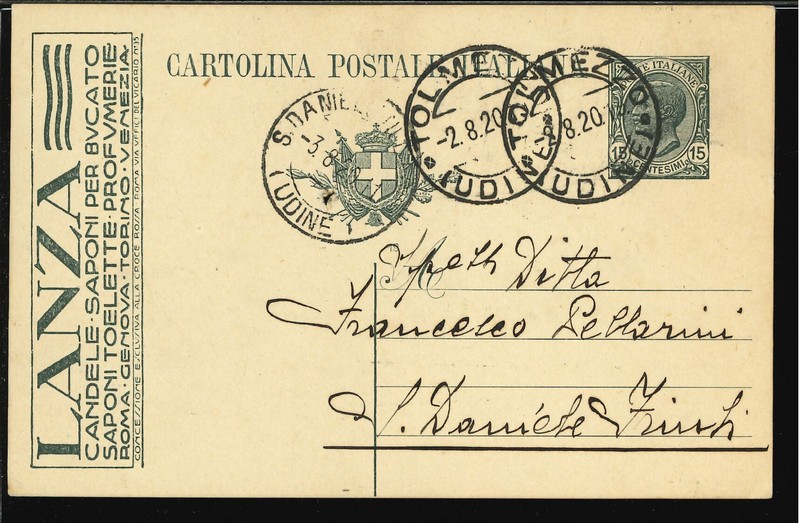 LANZA
CANDELE·SAPONI PER BVCATO
SAPONI TOELETTE·PROFVMERIE
ROMA·GENOVA·TORINO·VENEZIA
CONCESSIONE ESCLUSIVA ALLA CROCE ROSSA ROMA VIA UFFICI DEL VICARIO Nº35
CARTOLINA POSTALE ITALIANA
TOLMEZZO
-2.8.20
(UDINE)
TOLMEZZO
-2.8.20
(UDINE)
POSTE ITALIANE
15 CENTESIMI 15
S. DANIELE
-3.8
UDINE
Spett Ditta
Francesco Pellarini
S. Daniele Friuli